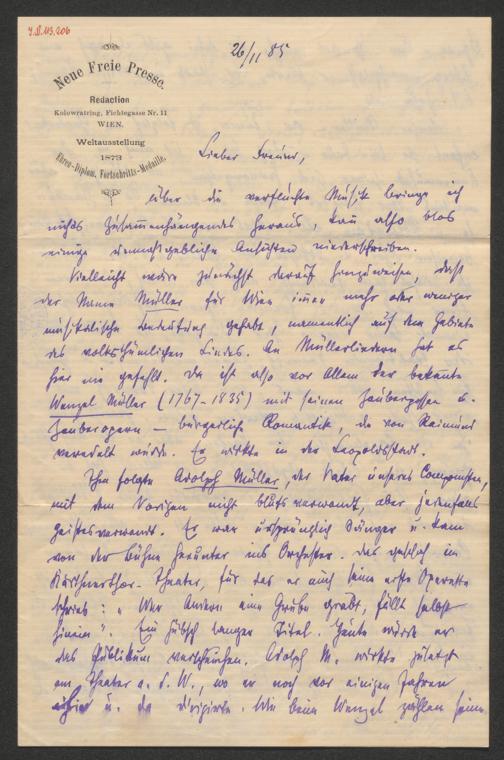 26/11 85
Neue Freie Presse.
Redaction
Kolowratring, Fichtegasse Nr. 11
WIEN.
Weltausstellung
1873
Ehren-Diplom. Fortschritts-Medaille.
Lieber Freund,
über die verfluchte Musik bringe ich
nichts Zusammenhängendes heraus, kann also blos
einige unmaßgebliche Ansichten niederschreiben.
Vielleicht wäre zunächst darauf hinzuweisen, daß
der Name Müller für Wien immer mehr oder weniger
musikalische Bedeutung gehabt, namentlich auf dem Gebiete
des volksthümlichen Liedes. An Müllerliedern hat es
hier nie gefehlt. Da ist also vor Allem der bekannte
Wenzel Müller (1767-1835) mit seinen Zauberpossen u.
Zauberopern – bürgerliche Romantik, die von Raimund
veredelt wurde. Er wirkte in der Leopoldstadt.
Ihm folgte Adolph Müller, der Vater unseres Componisten,
mit dem Vorigen nicht blutsverwandt, aber jedenfalls
geistesverwandt. Er war ursprünglich Sänger u. kam
von der Bühne herunter ins Orchester. Das geschah im
Kärthnerthor-Theater, für das er auch seine erste Operette
schrieb: „Wer Andern eine Grube gräbt, fällt selbst
hinein". Ein hübsch langer Titel. Heute würde er
das Publikum verscheuchen. Adolph M. wirkte zuletzt
am Theater a. d. W., wo er noch vor einigen Jahren
hie u. da dirigierte. Wie beim Wenzel zählen seine